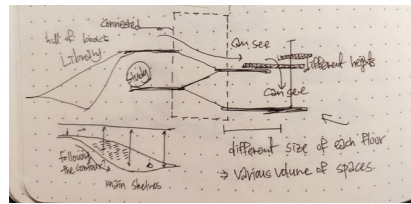 connected
full of books
Library
Study
can see
different heights
can see
following
the contour
main shelves
different size of each floor
→ various volume of spaces.